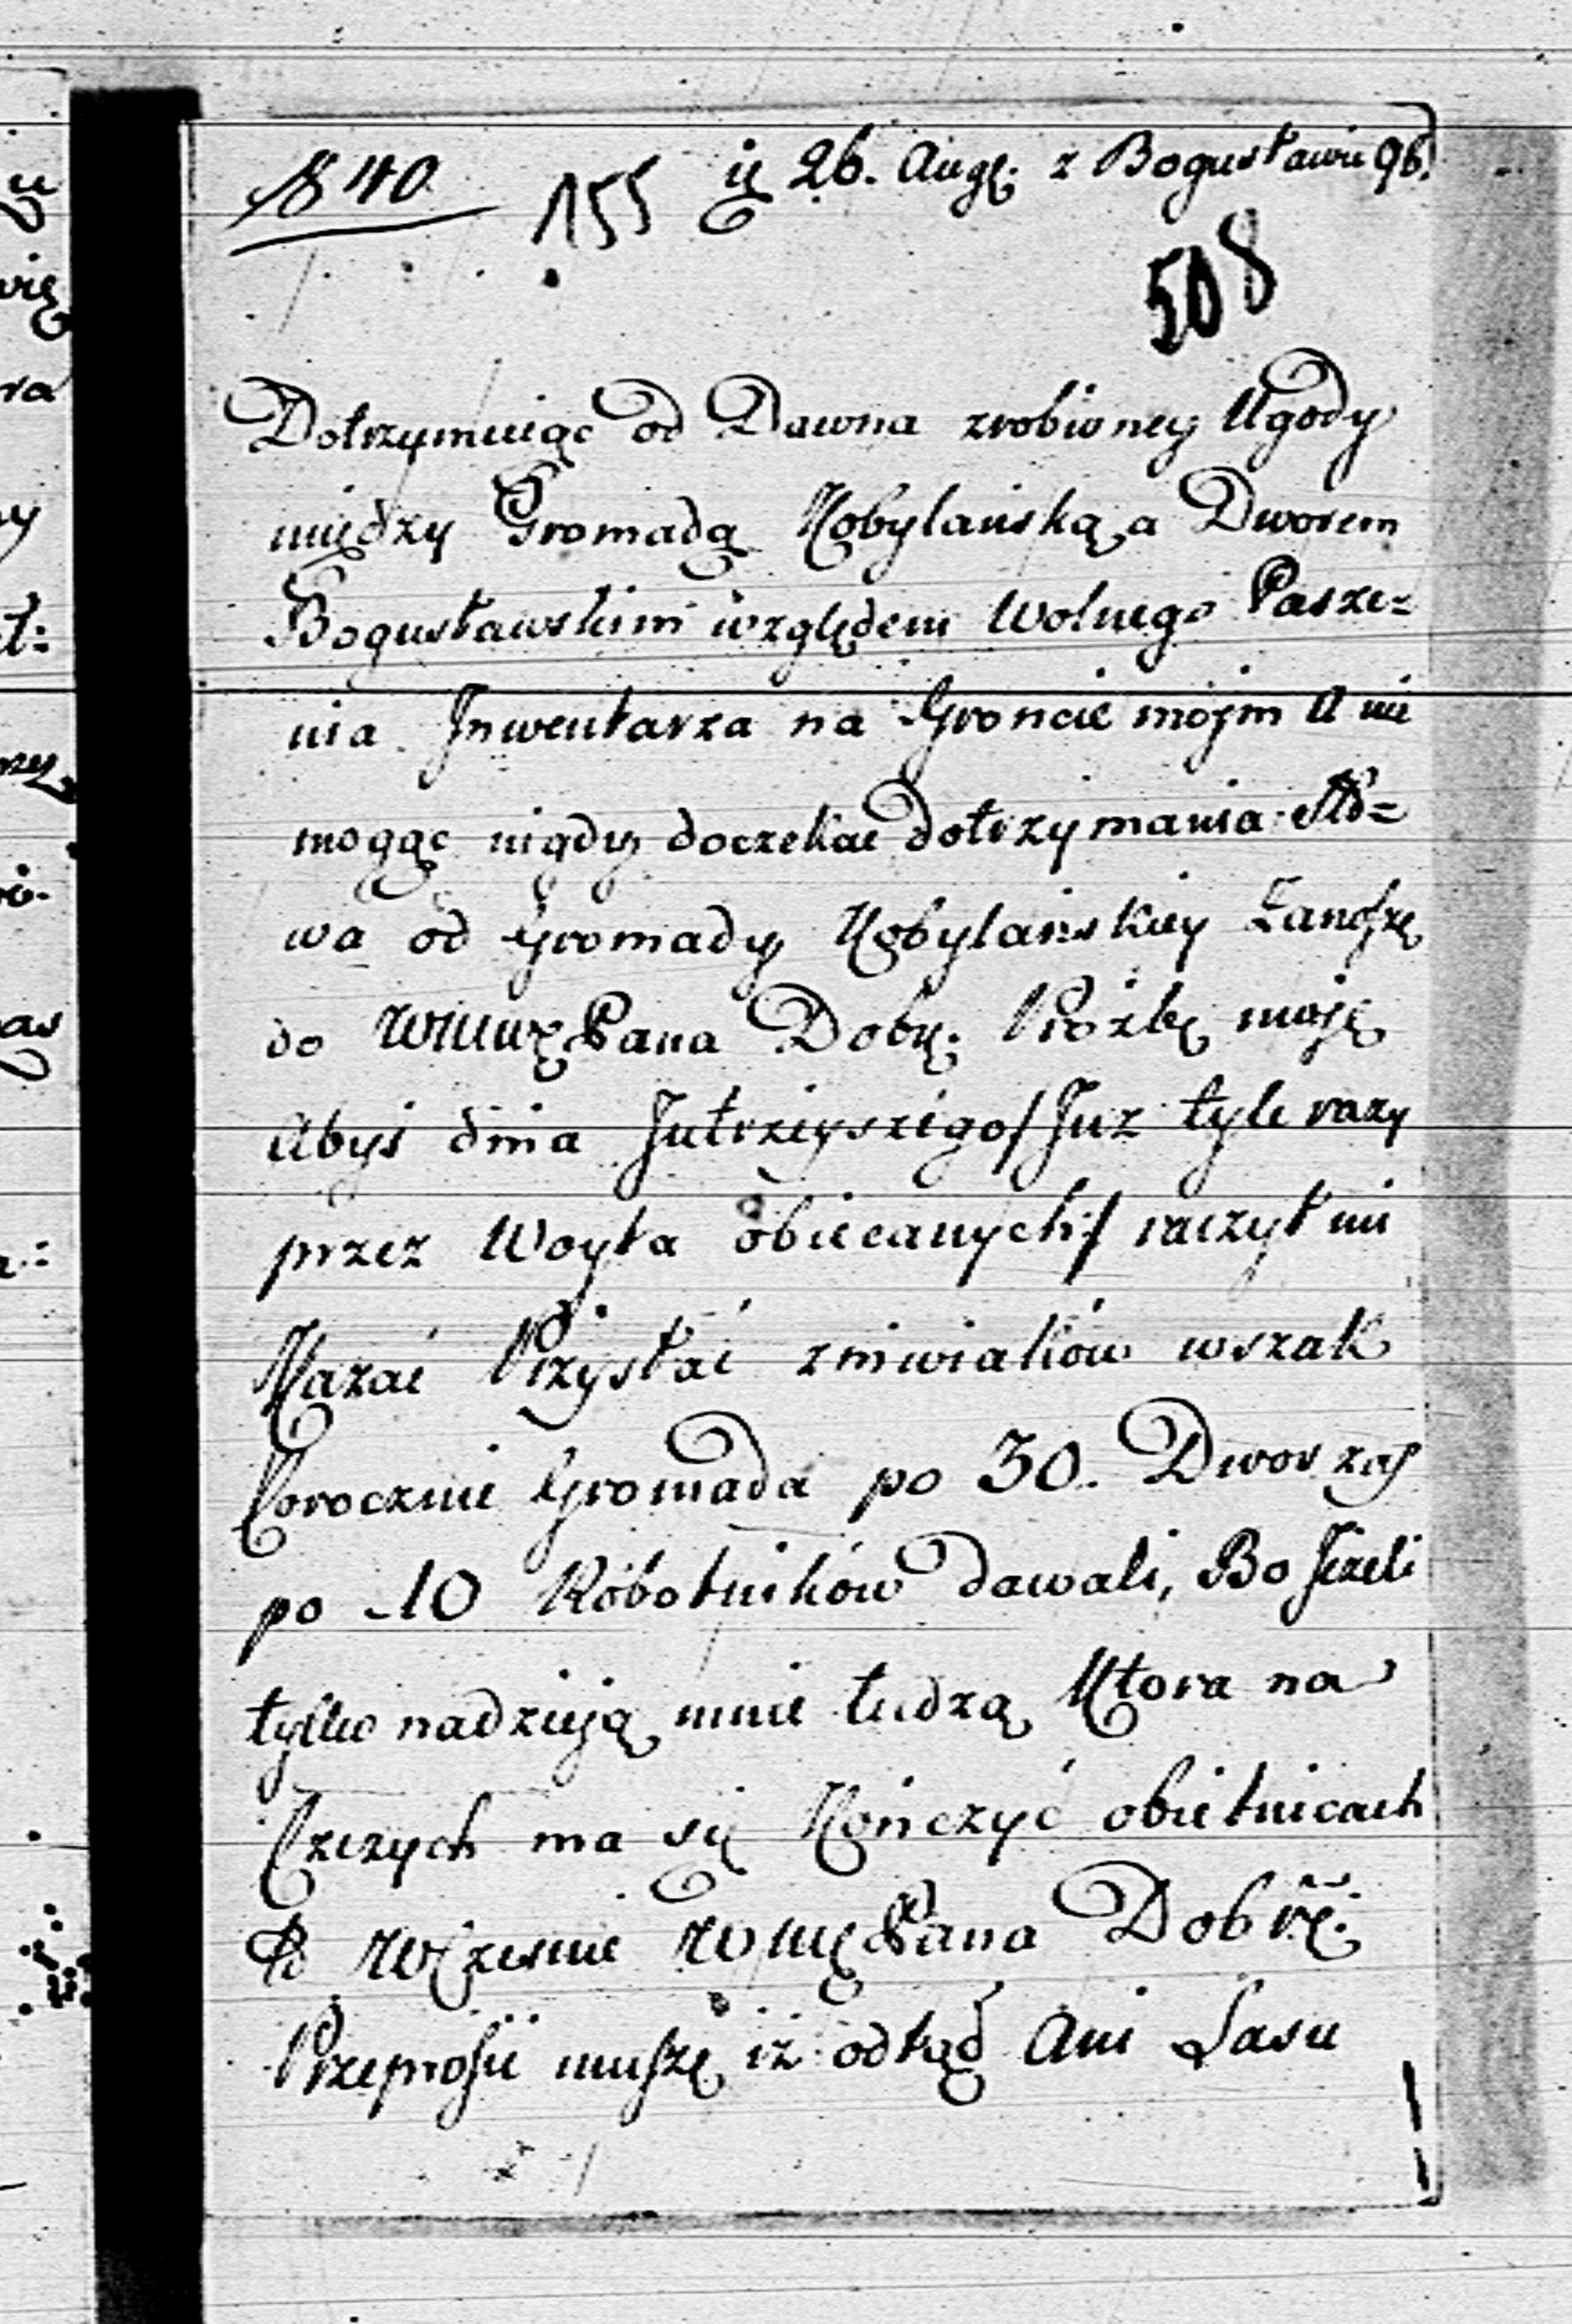 N 40 155 ię 26. Aug. z Bogusławia 96.
508
Dotrzymuiąc od Dawna zrobioney Ugody
między Gromadą Kobylańską a Dworem
Bogusławskim względem Wolnego Pasze=
nia Jnwentarza na Groncie mojm A nie
mogąc nigdy doczekać dotrzymania Sło=
wa od Gromady Kobylańskiey Zanoszę
do Pana Dobr. Prożbę moję
Abyś dnia Jutrzeyszego / Juz tyle razy
przez Woyta obiecanych / raczył mi
Kazać Przysłać zniwiaków wszak
Corocznie Gromada po 30. Dwor zaś
po 10 Robotników dawali, Bo Jeżeli
tylko nadzieją mnie łudzą Ktora na
Czczych ma się Kończyć obietnicach
To Wcześnie Pana Dobrę.
Przeprosić muszę iż odtąd Ani Lasu